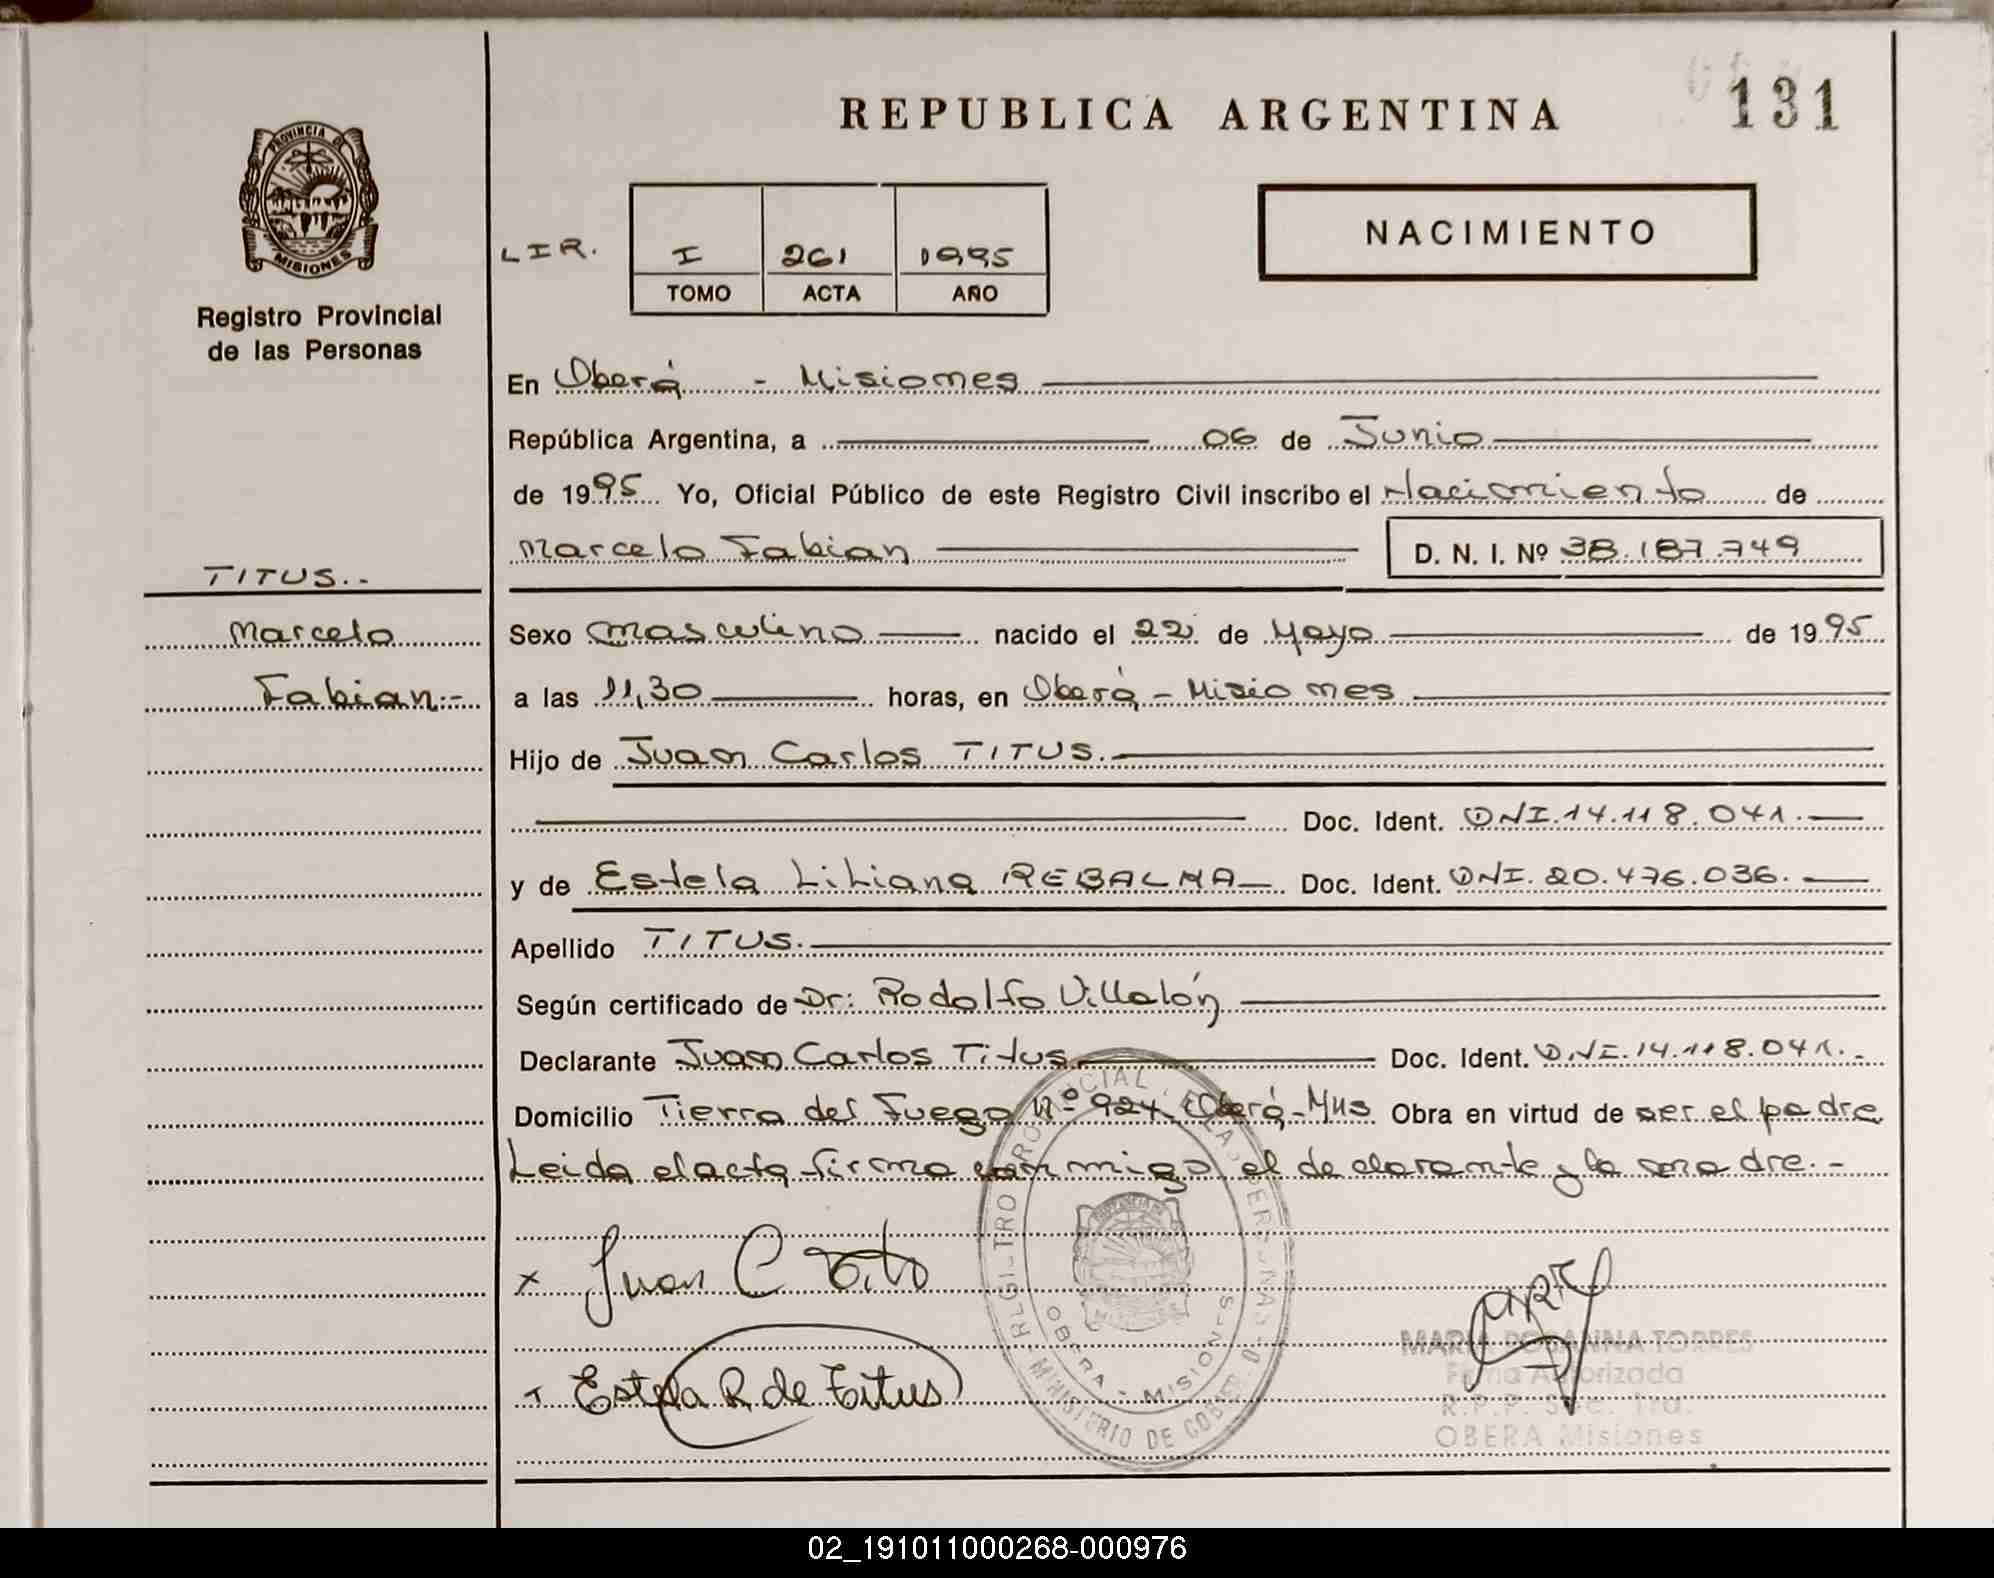 REPUBLICA ARGENTINA
131
PROVINCIA DE
MISIONES
Registro Provincial
de las Personas
NACIMIENTO
LIR. I 261 1995
TOMO ACTA AÑO
En Oberá - Misiones
República Argentina, a 06 de Junio
de 1995 Yo, Oficial Público de este Registro Civil inscribo el Nacimiento de
Marcelo Fabian D. N. I. Nº 38.187.749
TITUS.-
Marcelo
Fabian.-
Sexo masculino nacido el 22 de Mayo de 1995
a las 11,30 horas, en Oberá - Misiones
Hijo de Juan Carlos TITUS.
Doc. Ident. DNI.14.118.041.
y de Estela Liliana REBALMA Doc. Ident. DNI. 20.476.036.
Apellido TITUS.
Según certificado de Dr: Rodolfo Villalón
Declarante Juan Carlos Titus Doc. Ident. DNI.14.118.041.-
Domicilio Tierra del Fuego Nº 924 Oberá-Mns Obra en virtud de ser el padre
Leida el acta firma conmigo el declarante y la madre.-
x Juan C Tito
x Estela R de Titus
REGISTRO PROVINCIAL DE LAS PERSONAS
OBERA - MISIONES
MINISTERIO DE GOBIERNO
MARIA ROSANNA TORRES
Firma Autorizada
R.P.P. Sec. 1ra.
OBERA Misiones
02_191011000268-000976